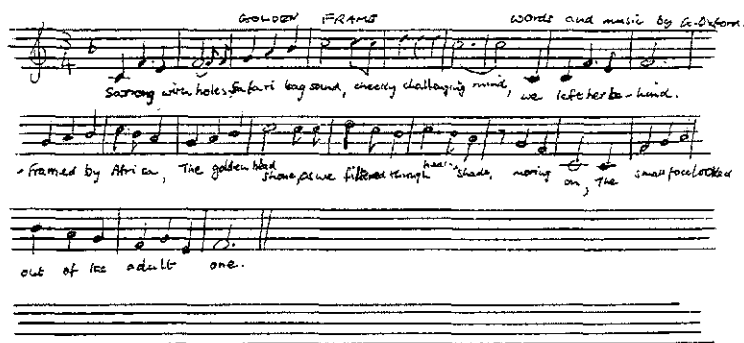 GOLDEN FRAME words and music by G. Oxford.
Sarong with holes, Safari bag sound, cheeky challenging mind, we left her be-hind.
Framed by Africa, The golden head shone, as we filtered through healing shade, moving on, The small face looked
out of the adult one.